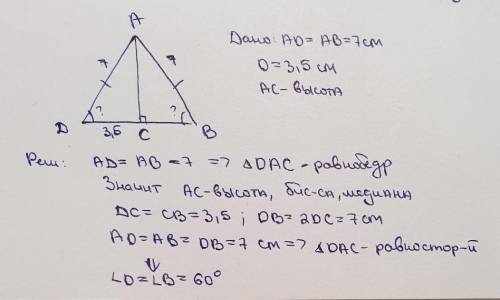 A
Дано: AD = AB = 7 см
7 7
D = 3,5 см
AC - высота
? ?
D 3,5 C B
Реш: AD = AB = 7 => △DAC - равнобедр
Значит AC - высота, бис-са, медиана
DC = CB = 3,5 ; DB = 2DC = 7 см
AD = AB = DB = 7 см => △DAC - равностор-й
⇓
∠D = ∠B = 60°